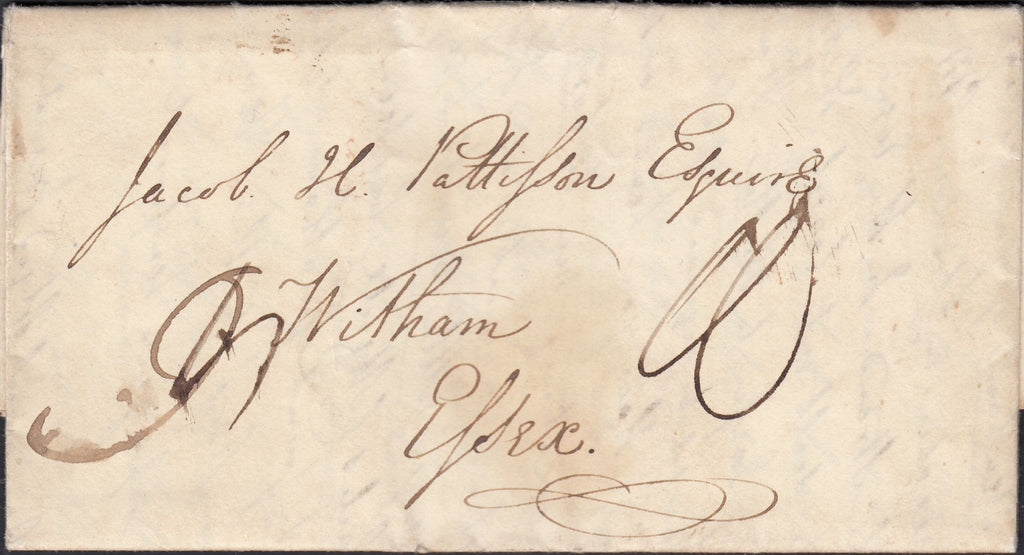 Jacob. H. Pattiſson Esquire
Witham
Eſsex.